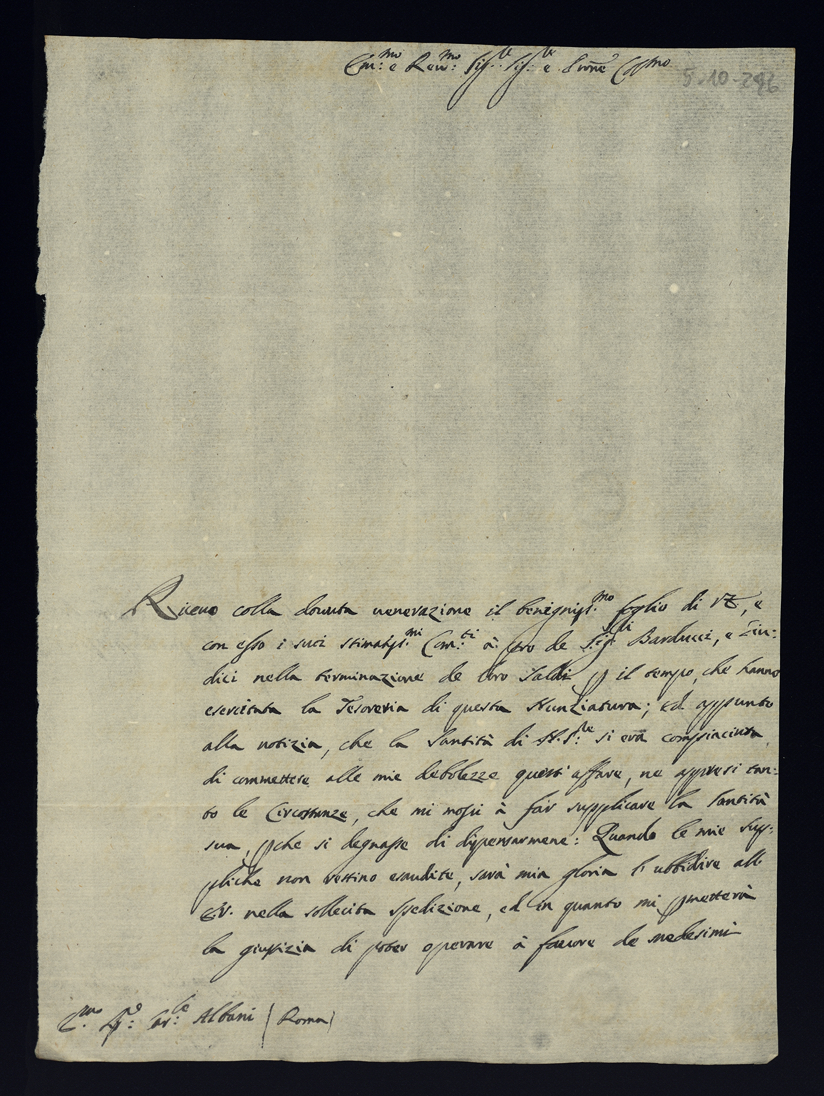 Em:mo e Rev:mo Sig:re Sig:re e Prone Col:mo
5-10-296
Riceuo colla douuta uenerazione il benigniss:mo foglio di VE, e
con esso i suoi stimatiss:mi Com:ti à pro de Sig:ri Barducci, e Giu-
dici nella terminazione de loro saldi p il tempo, che hanno
esercitata la Tesoreria di questa Nunziatura; ed appunto
alla notizia, che la Santità di N.S:re si era compiaciuta
di commettere alle mie debolezze quest'affare, ne appresi tan-
to le Circostanze, che mi mossi à far supplicare la Santità
sua, pche si degnasse di dispensarmene: Quando le mie sup-
pliche non restino esaudite, sarà mia gloria l'ubbidire all
EV. nella sollecita spedizione, ed in quanto mi pmetterà
la giustizia di poter operare à fauore de medesimi
Albani (Roma)